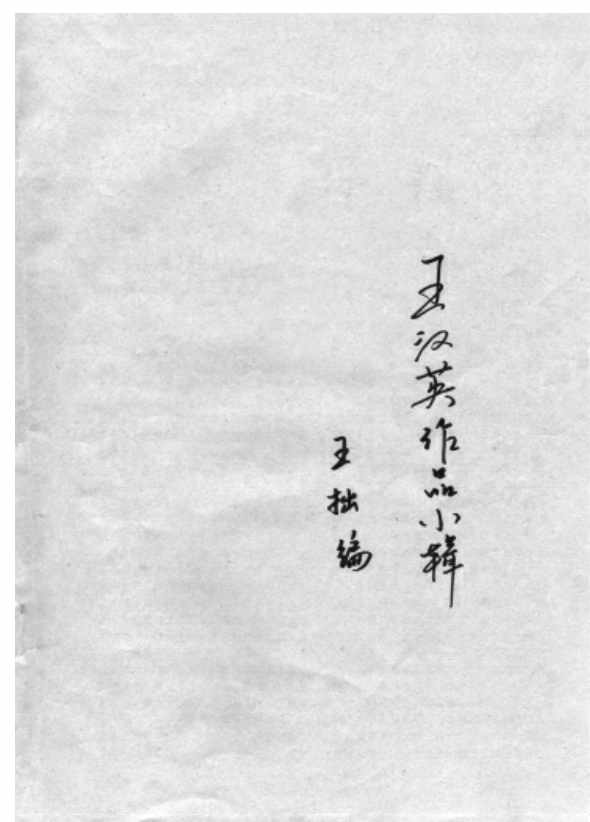 王汉英作品小辑
王拙编